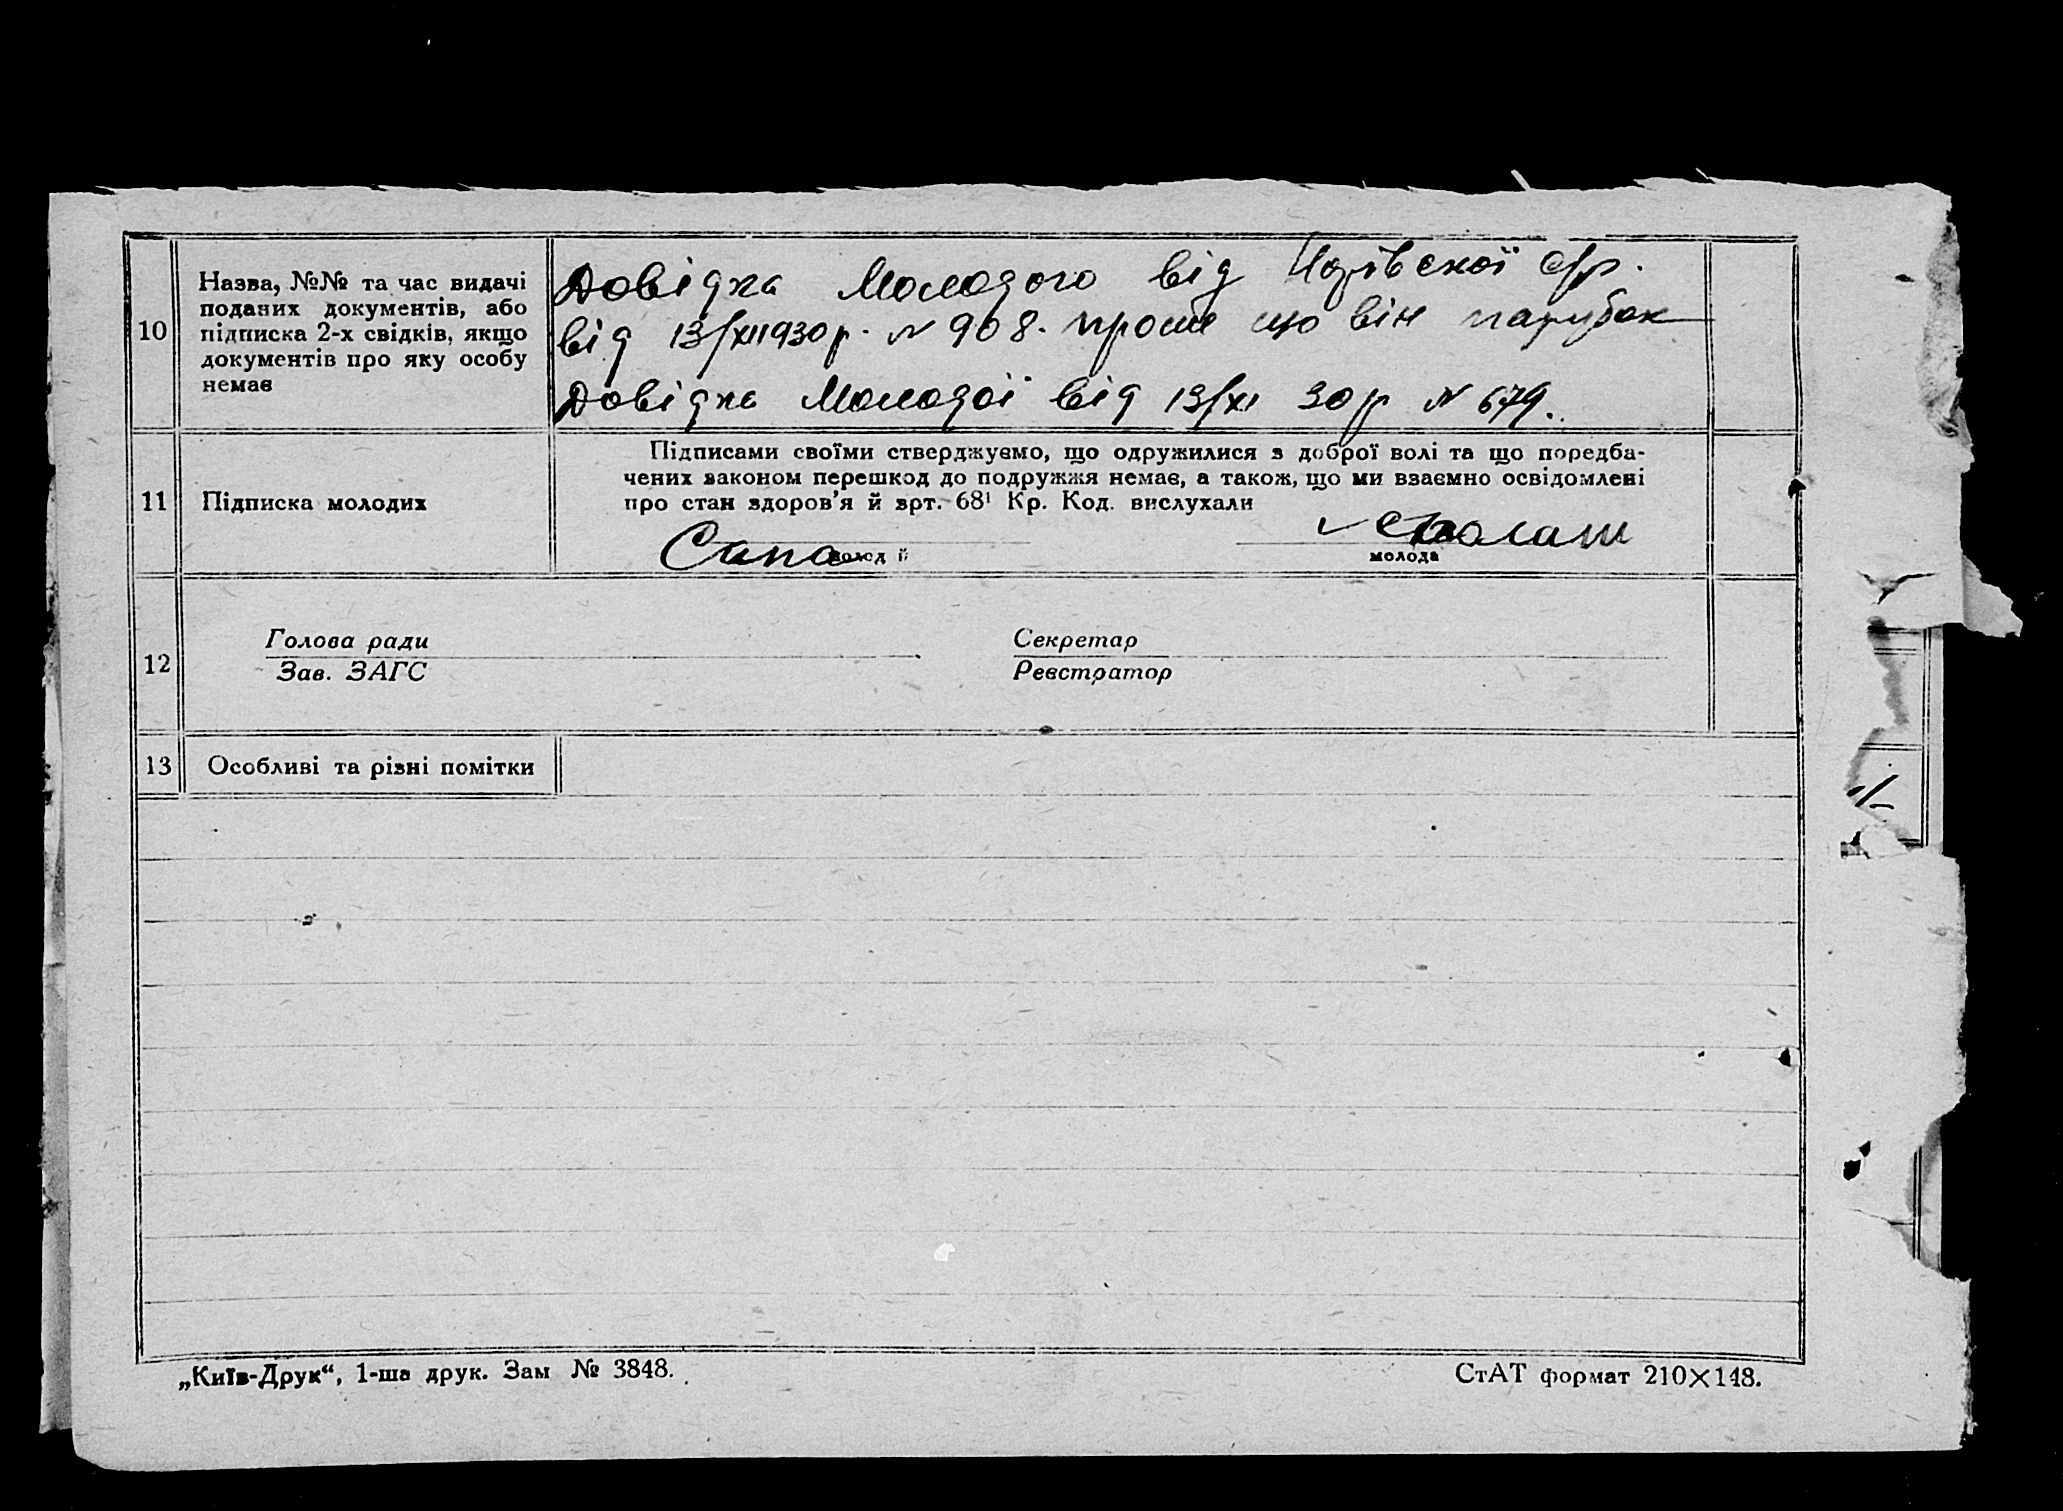 10
Назва, №№ та час видачі
поданих документів, або
підписка 2-х свідків, якщо
документів про яку особу
немає
Довідка Молодого від с/р.
від 13/XII 1930 р. № 908. про те що він парубок
Довідка Молодої від 13/XI 30 р № 679.
11
Підписка молодих
Підписами своїми стверджуємо, що одружилися з доброї волі та що поредба-
чених законом перешкод до подружжя немає, а також, що ми взаємно освідомлені
про стан здоров'я й арт. 68¹ Кр. Код. вислухали
Сапа
молода
12
Голова ради
Зав. ЗАГС
Секретар
Реєстратор
13
Особливі та різні помітки
„Київ-Друк“, 1-ша друк. Зам № 3848.
СтАТ формат 210×148.